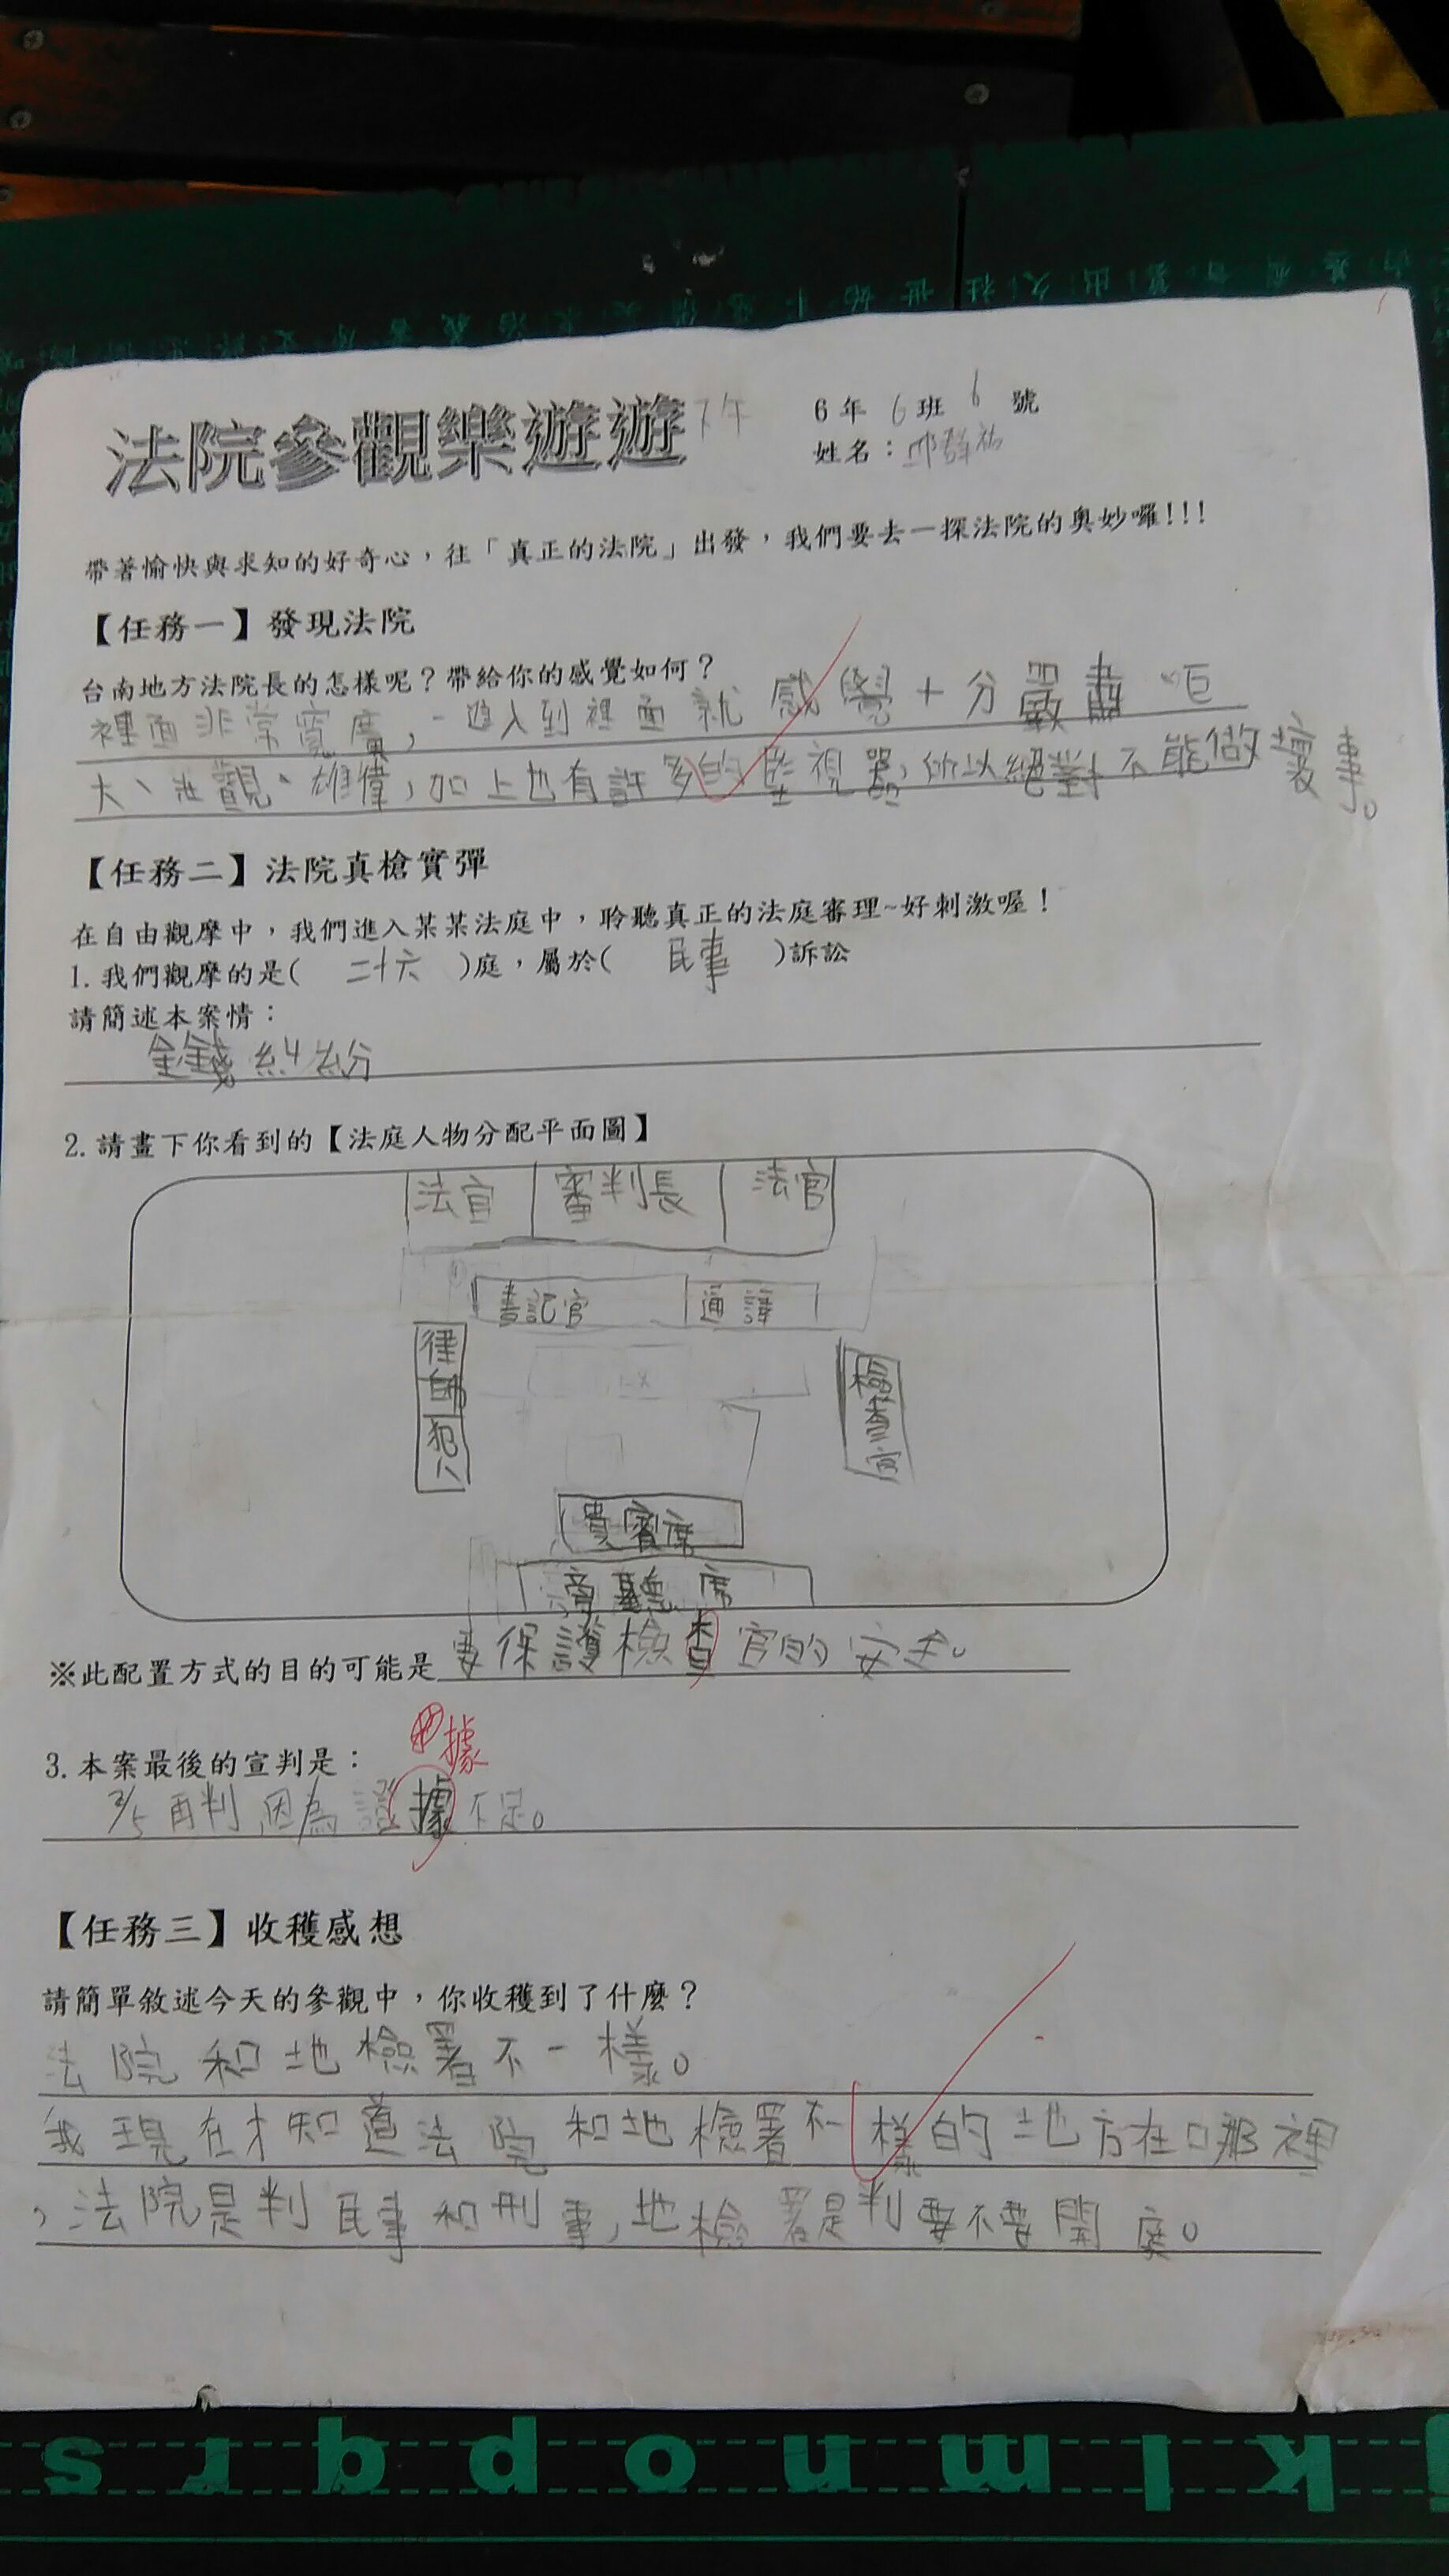 法院參觀樂遊遊 下午
6年 6班 6 號
姓名：邱群祐
帶著愉快與求知的好奇心，往「真正的法院」出發，我們要去一探法院的奧妙囉!!!
【任務一】發現法院
台南地方法院長的怎樣呢？帶給你的感覺如何？
裡面非常寬廣，一進入到裡面就感覺十分嚴肅、巨
大、壯觀、雄偉，加上也有許多的監視器，所以絕對不能做壞事。
【任務二】法院真槍實彈
在自由觀摩中，我們進入某某法庭中，聆聽真正的法庭審理~好刺激喔！
1.我們觀摩的是( 二十六 )庭，屬於( 民事 )訴訟
請簡述本案情：
金錢糾紛
2.請畫下你看到的【法庭人物分配平面圖】
法官 審判長 法官
書記官 通譯
律師 犯人
檢查官
貴賓席
旁聽席
※此配置方式的目的可能是 要保護檢查官的安全。
據
3.本案最後的宣判是：
3/5再判，因為證據不足。
【任務三】收穫感想
請簡單敘述今天的參觀中，你收穫到了什麼？
法院和地檢署不一樣。
我現在才知道法院和地檢署不一樣的地方在哪裡
，法院是判民事和刑事，地檢署是判要不要開庭。
s r q p o n m l k j